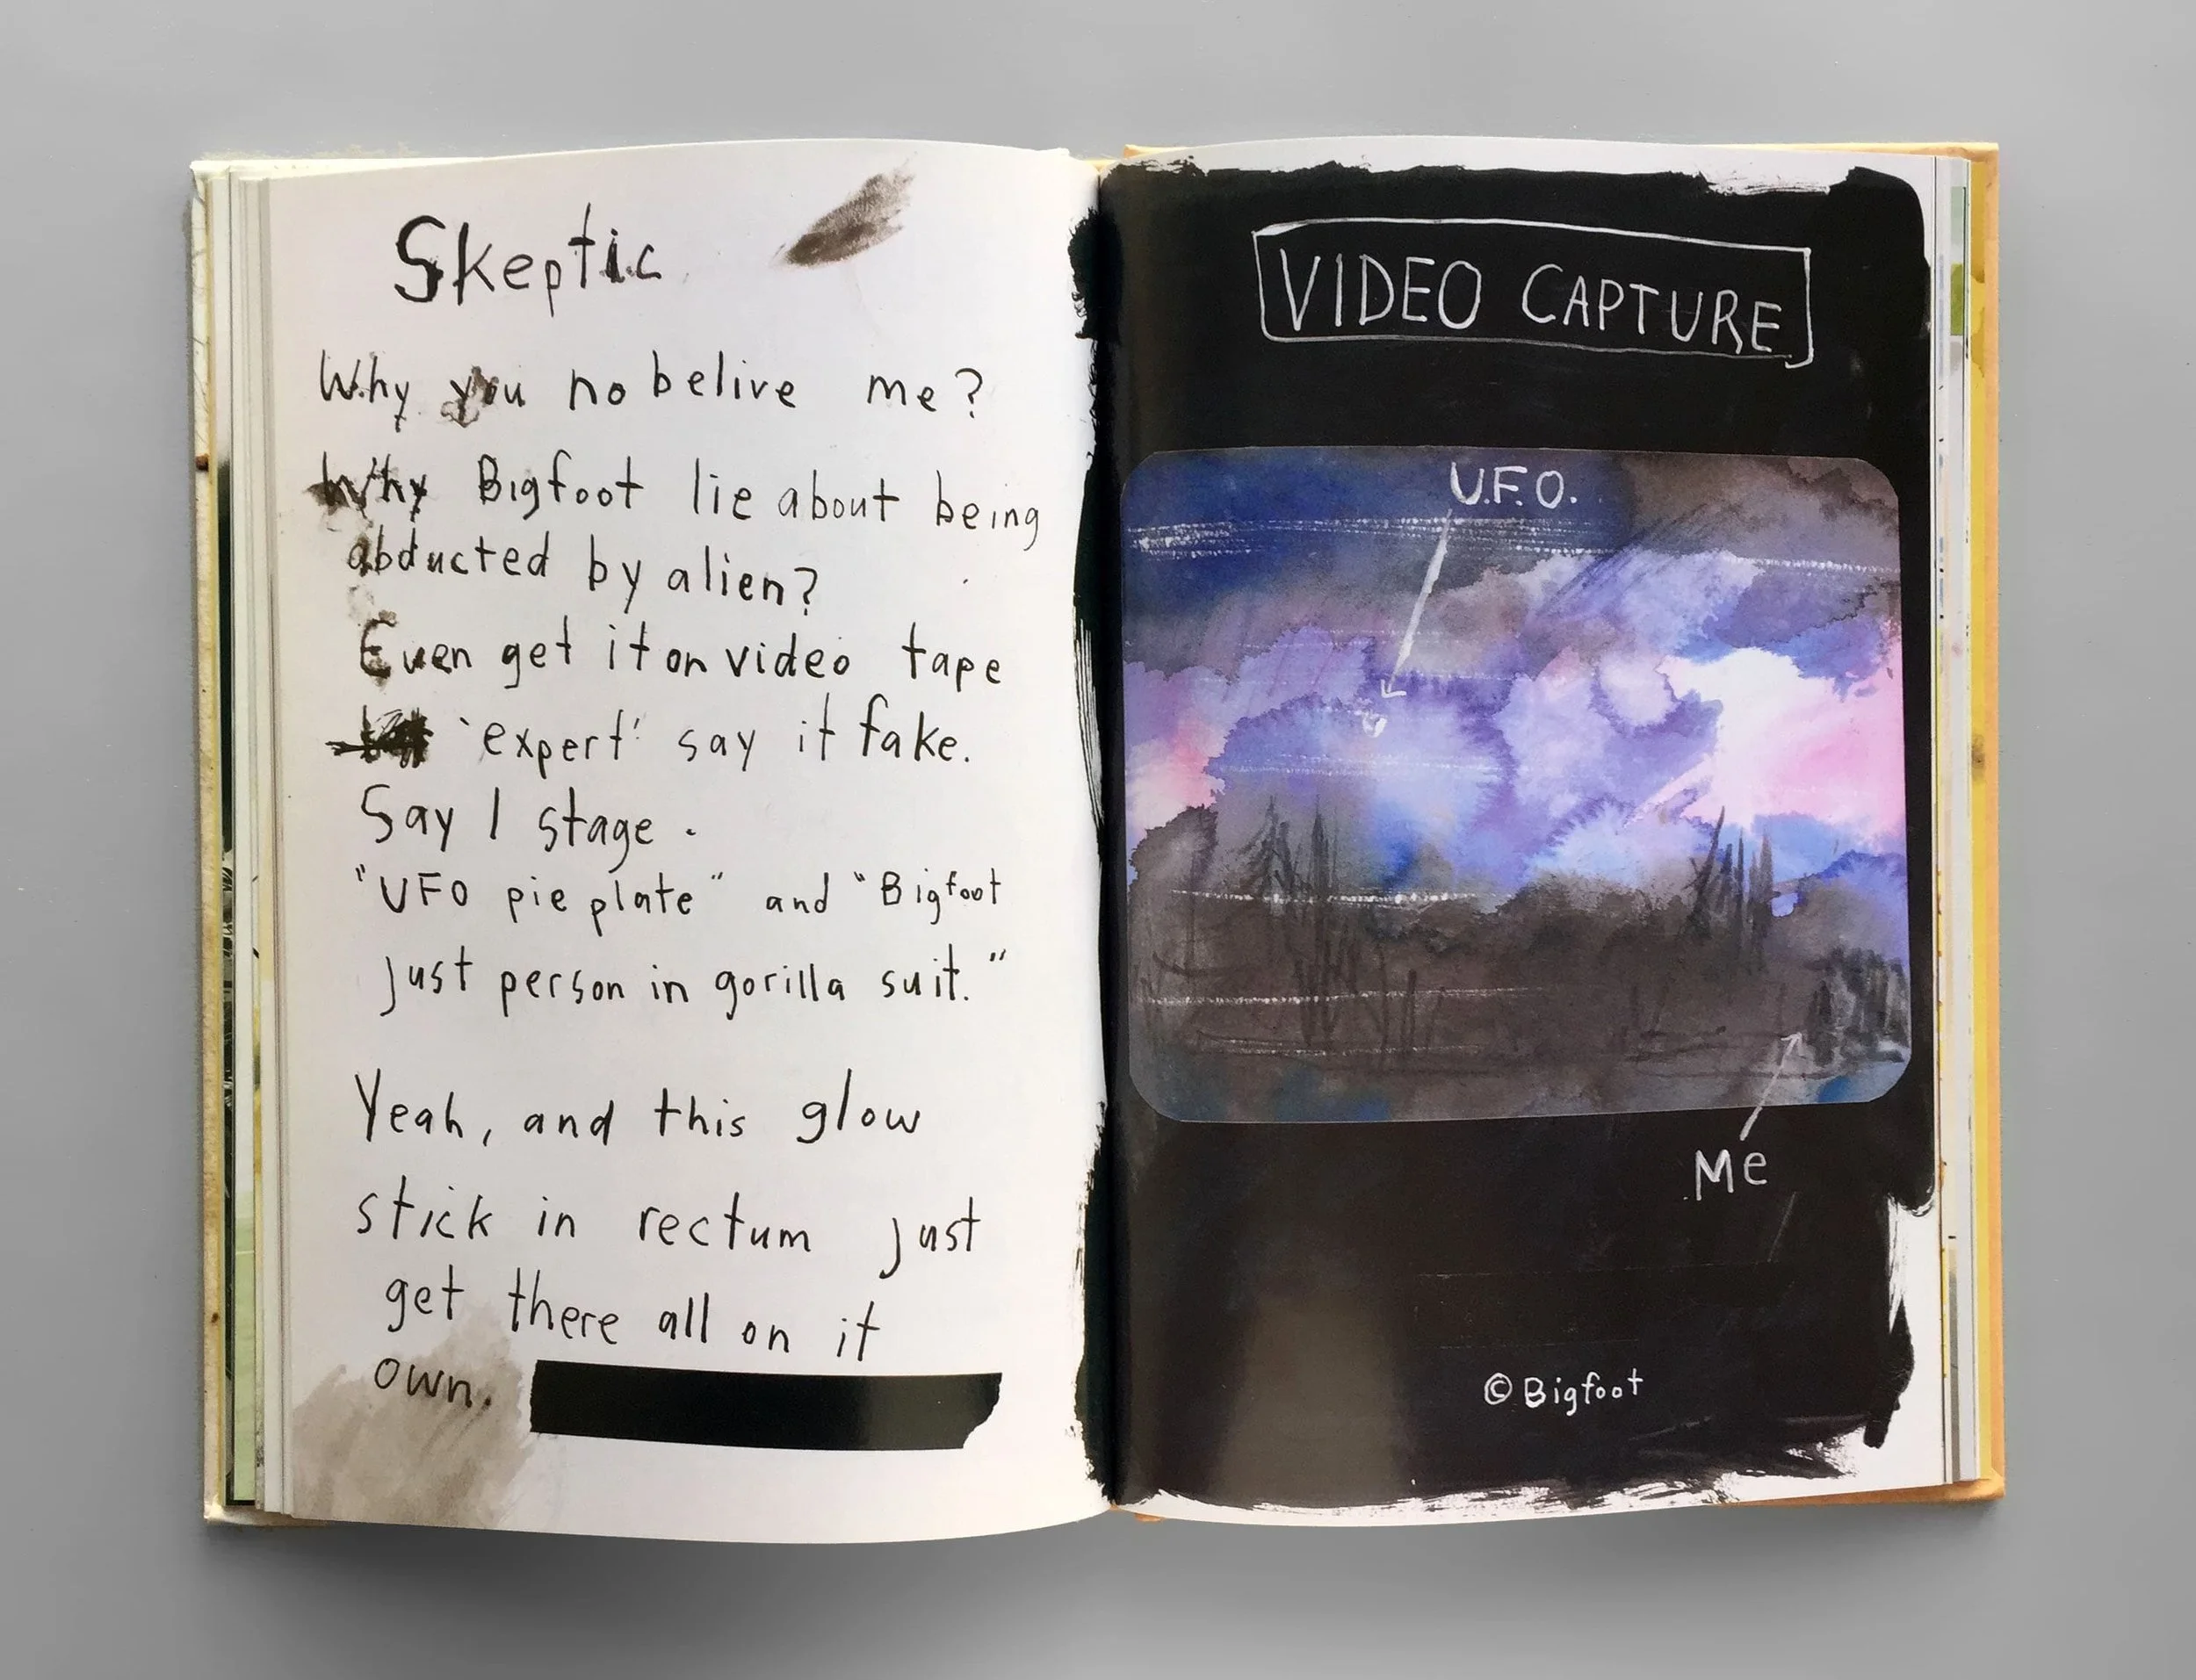 Skeptic
Why you no belive me?
Why Bigfoot lie about being
abducted by alien?
Even get it on video tape
'expert' say it fake.
Say I stage.
"UFO pie plate" and "Bigfoot
just person in gorilla suit."
Yeah, and this glow
stick in rectum just
get there all on it
own.
VIDEO CAPTURE
U.F.O.
Me
© Bigfoot